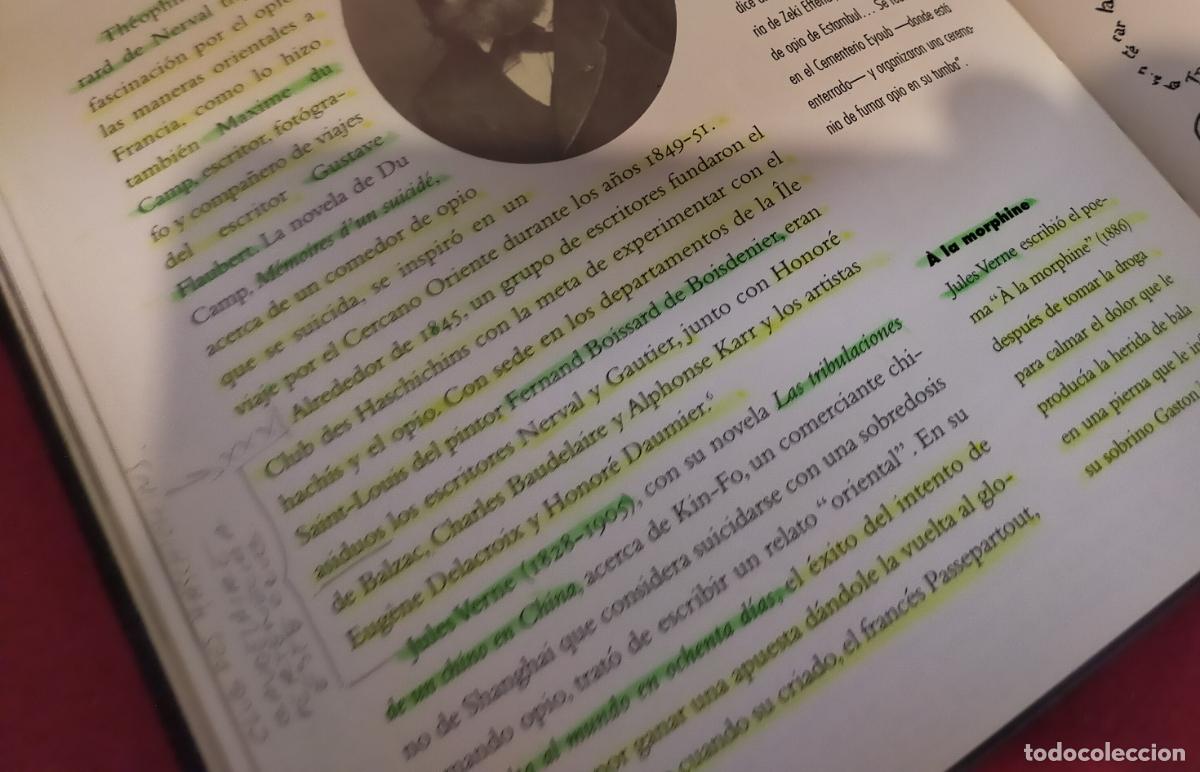 Théophil
rard de Nerval
fascinación por el opio
las maneras orientales a
Francia, como lo hizo
también Maxime du
Camp, escritor, fotógra-
fo y compañero de viajes
del escritor Gustave
Flaubert. La novela de Du
Camp, Mémoires d'un suicidé,
acerca de un comedor de opio
que se suicida, se inspiró en un
viaje por el Cercano Oriente durante los años 1849-51.
Alrededor de 1845, un grupo de escritores fundaron el
Club des Haschichins con la meta de experimentar con el
hachís y el opio. Con sede en los departamentos de la Île
Saint-Louis del pintor Fernand Boissard de Boisdenier, eran
asiduos los escritores Nerval y Gautier, junto con Honoré
de Balzac, Charles Baudelaire y Alphonse Karr y los artistas
Eugène Delacroix y Honoré Daumier.6
Jules Verne (1828-1905), con su novela Las tribulaciones
de un chino en China, acerca de Kin-Fo, un comerciante chi-
no de Shanghai que considera suicidarse con una sobredosis
mando opio, trató de escribir un relato "oriental". En su
al mundo en ochenta días, el éxito del intento de
por ganar una apuesta dándole la vuelta al glo-
cuando su criado, el francés Passepartout,
ría de Zeki
de opio de Estambul... Se
en el Cementerio Eyoub —donde está
enterrado— y organizaron una ceremo-
nia de fumar opio en su tumba".
À la morphine
Jules Verne escribió el poe-
ma "À la morphine" (1886)
después de tomar la droga
para calmar el dolor que le
producía la herida de bala
en una pierna que le
su sobrino Gaston
todocoleccion